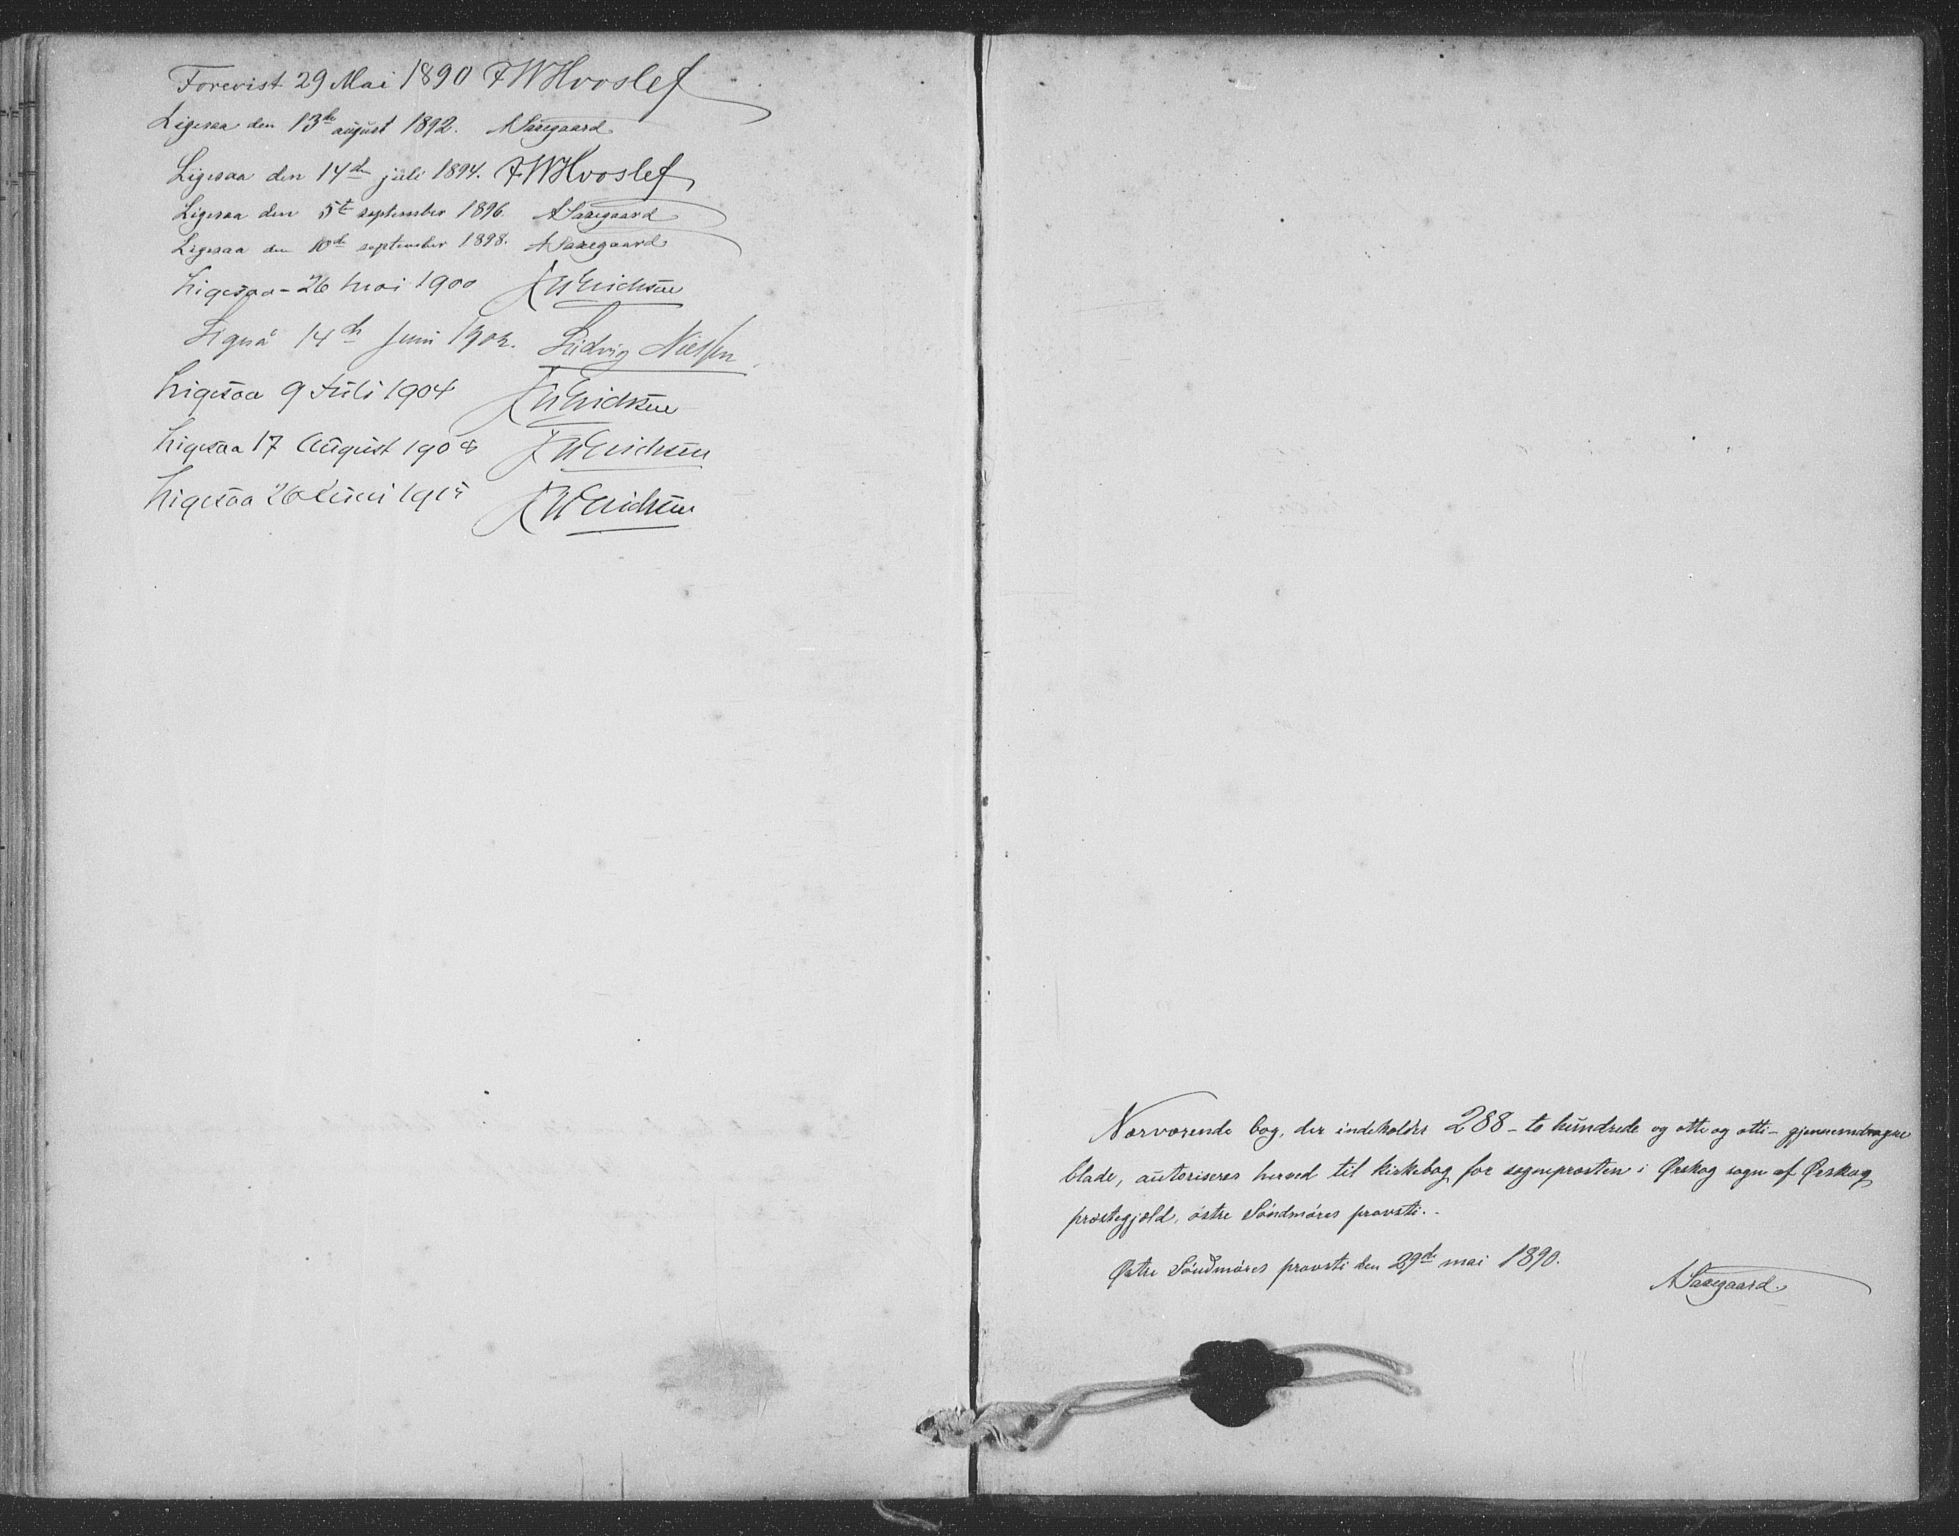 Forevist 29 Mai 1890 FWHvoslef
Ligesaa den 13de august 1892. ASaxegaard
Ligesaa den 14de juli 1894. FWHvoslef
Ligesaa den 5te september 1896. ASaxegaard
Ligesaa den 10de september 1898. ASaxegaard
Ligesaa - 26 Mai 1900 Erichsen
Ligeså 14de Juni 1902. Ludvig
Ligesaa 9 Juli 1904 Erichsen
Ligesaa 17 August 1908 Erichsen
Ligesaa 26 Juni Erichsen
Nærværende bog, der indeholder 288 - to hundrede og otte og otti - gjennemdragne
blade, autoriseres herved til kirkebog for sogneprosten i Ørskog sogn af Ørskog
prestegjeld, østre Söndmöres provsti. -
Østre Söndmöres provsti den 29de mai 1890.
ASaxegaard.